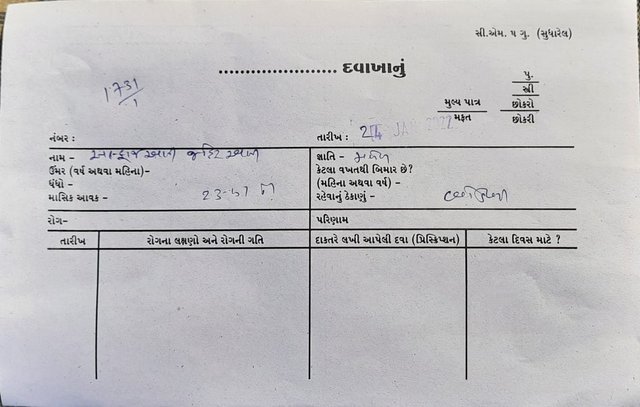 સી.એમ. ૫ ગુ. (સુધારેલ)
..................... દવાખાનું
1731
પુ.
સ્ત્રી
મુલ્ય પાત્ર
મફત
છોકરો
છોકરી
નંબર :
તારીખ : 24 JAN 2022
નામ -
જ્ઞાતિ -
ઉંમર (વર્ષ અથવા મહિના)-
કેટલા વખતથી બિમાર છે?
ધંધો -
(મહિના અથવા વર્ષ) -
માસિક આવક -
રહેવાનું ઠેકાણું -
રોગ-
પરિણામ
તારીખ રોગના લક્ષણો અને રોગની ગતિ દાકતરે લખી આપેલી દવા (પ્રિસ્ક્રિપ્શન) કેટલા દિવસ માટે ?